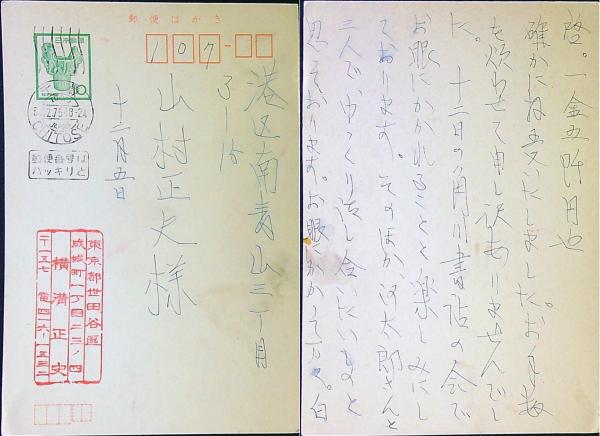 郵便はがき
日本郵便
10
107
港区南青山三丁目
3-18
山村正夫様
十二月五日
5.12.75 18-24
CHITOSE
郵便番号は
ハッキリと
東京都世田谷区
成城町一丁目二三ノ四
横溝正史
啓。一金五阡円也
確かに拝受いたしました。お手数
を煩わせて申し訳ありませんでし
た。十二日の角川書店の会で
お眼にかかれることを楽しみにし
ております。そのほか、河太郎さんと
三人で、ゆっくり話し合いたいものと
思っております。お眼にかかって万々。白